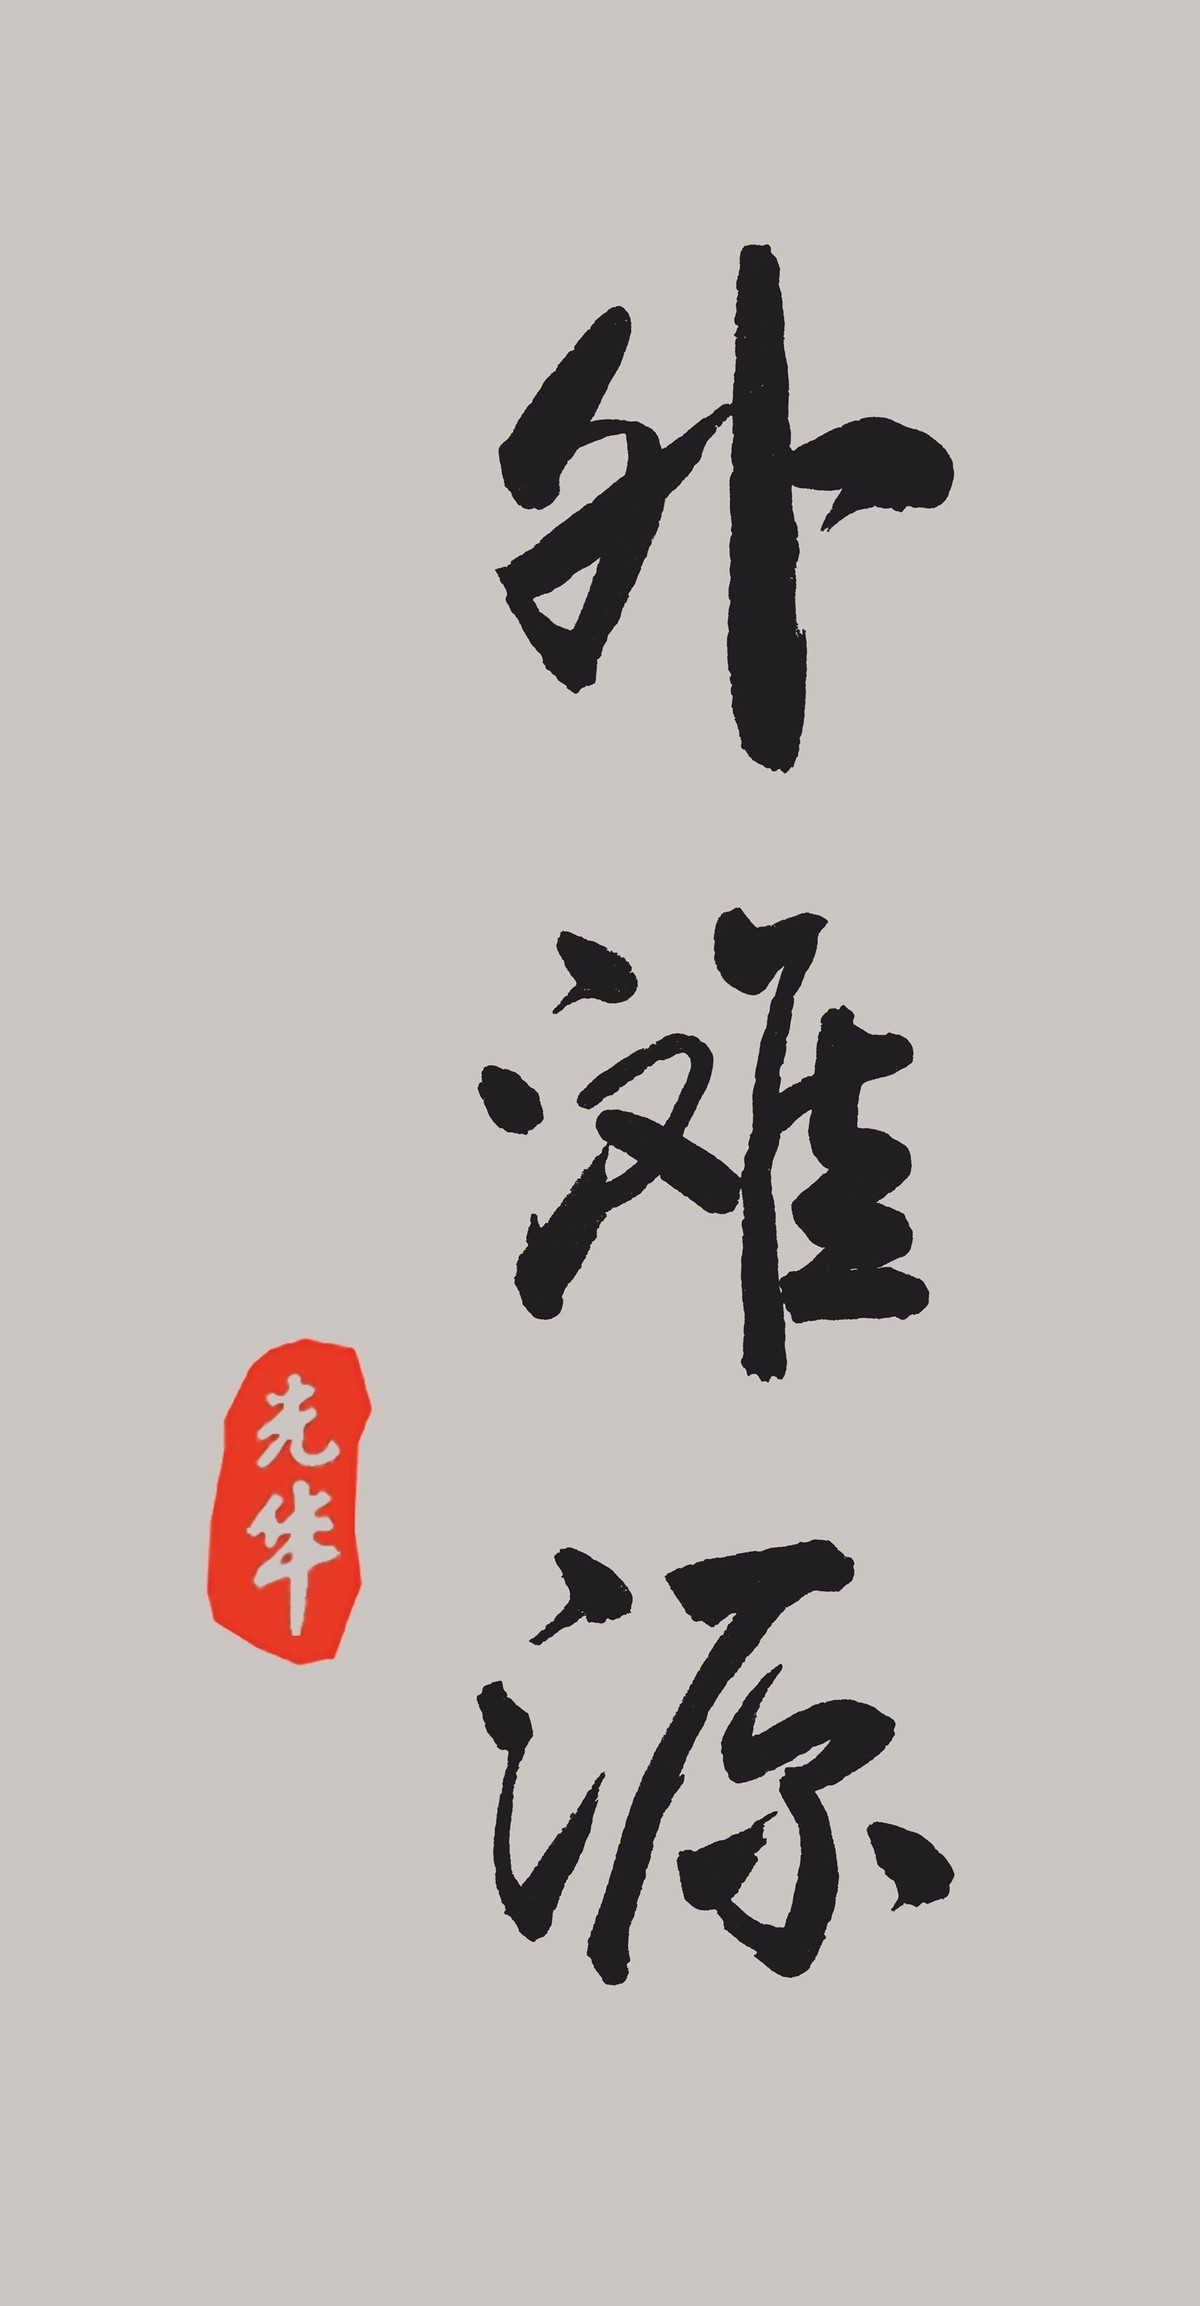 外滩源
光华